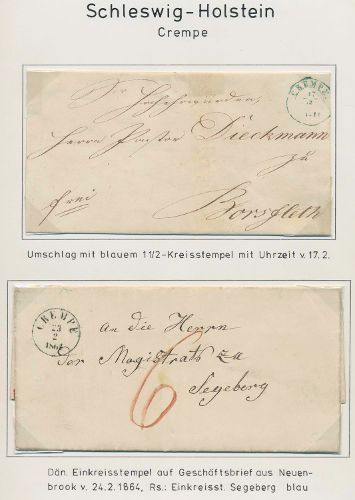 Schleswig-Holstein
Crempe
CREMPE
17
2
Sr Hochehrwürden,
Herrn Pastor Dieckmann
zu
frei
Borsfleth
Umschlag mit blauem 11/2-Kreisstempel mit Uhrzeit v. 17. 2.
CREMPE
23
2
1864
An die Herrn
der Magistrats zu
6
Segeberg
Dän. Einkreisstempel auf Geschäftsbrief aus Neuen-
brook v. 24.2.1864, Rs.: Einkreisst. Segeberg blau